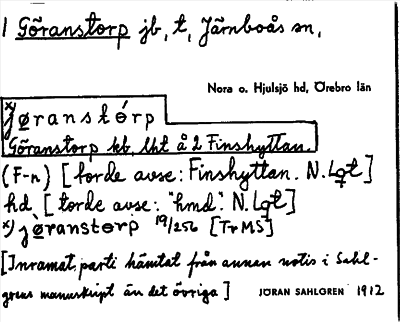 1 Göranstorp jb, t, Järnboås sn,
Nora o. Hjulsjö hd, Örebro län
x) jøranstórp
Göranstorp kb, lht å 2 Finshyttan.
(F-n) [torde avse: Finshyttan. N. Lgt]
hd. [torde avse: "hmd". N. Lgt]
x) jøranstorp 19/256 [Tr MS]
[Inramat parti hämtat från annan notis i Sahl-
grens manuskript än det övriga] JÖRAN SAHLGREN 1912